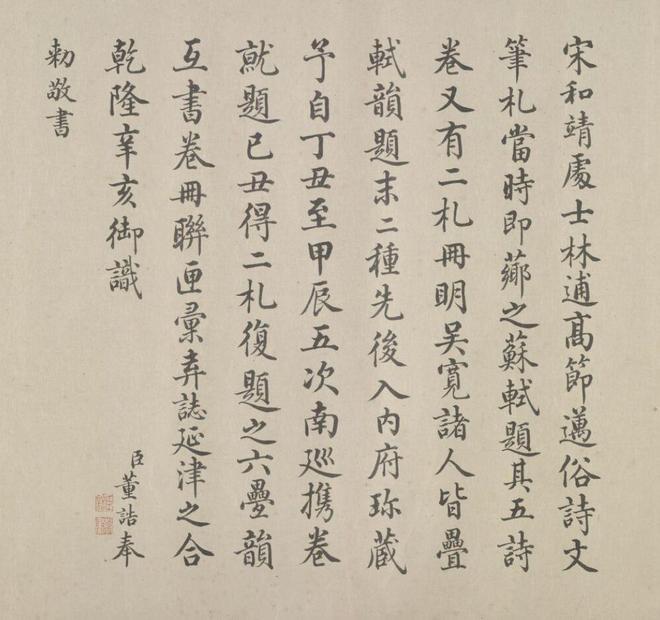 宋和靖處士林逋高節邁俗詩文
筆札當時即薌之蘇軾題其五詩
卷又有二札冊明吴寬諸人皆疊
軾韻題末二種先後入内府珎藏
予自丁丑至甲辰五次南廵攜卷
就題已丑得二札復題之六疊韻
互書卷冊聯匣彚弆誌延津之合
乾隆辛亥御識
臣董誥奉
勅敬書